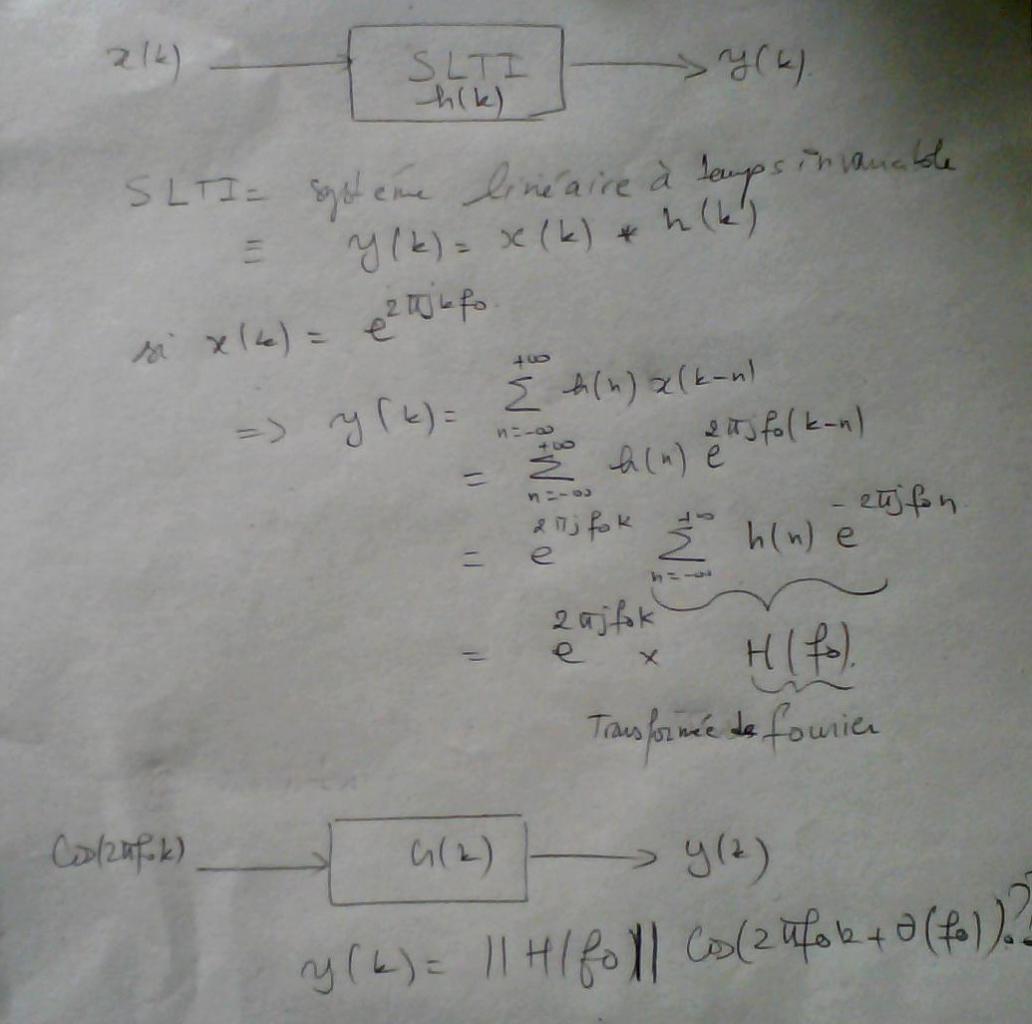 x(k) → SLTI h(k) → y(k).
SLTI = système linéaire à temps invariable
≡ y(k) = x(k) * h(k)
si x(k) = e^{2πjkf₀}
=> y(k) = ∑_{n=-∞}^{+∞} h(n) x(k-n)
= ∑_{n=-∞}^{+∞} h(n) e^{2πjf₀(k-n)}
= e^{2πjf₀k} ∑_{n=-∞}^{+∞} h(n) e^{-2πjf₀n}
= e^{2πjf₀k} × H(f₀).
Transformée de fourier
Cos(2πf₀k) → h(k) → y(k)
y(k) = ||H(f₀)|| Cos(2πf₀k + θ(f₀)).??